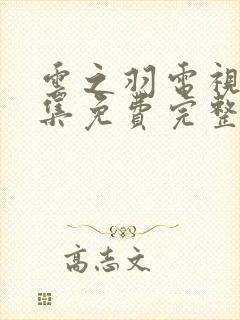 雲之羽電視
集免費完整
高志文